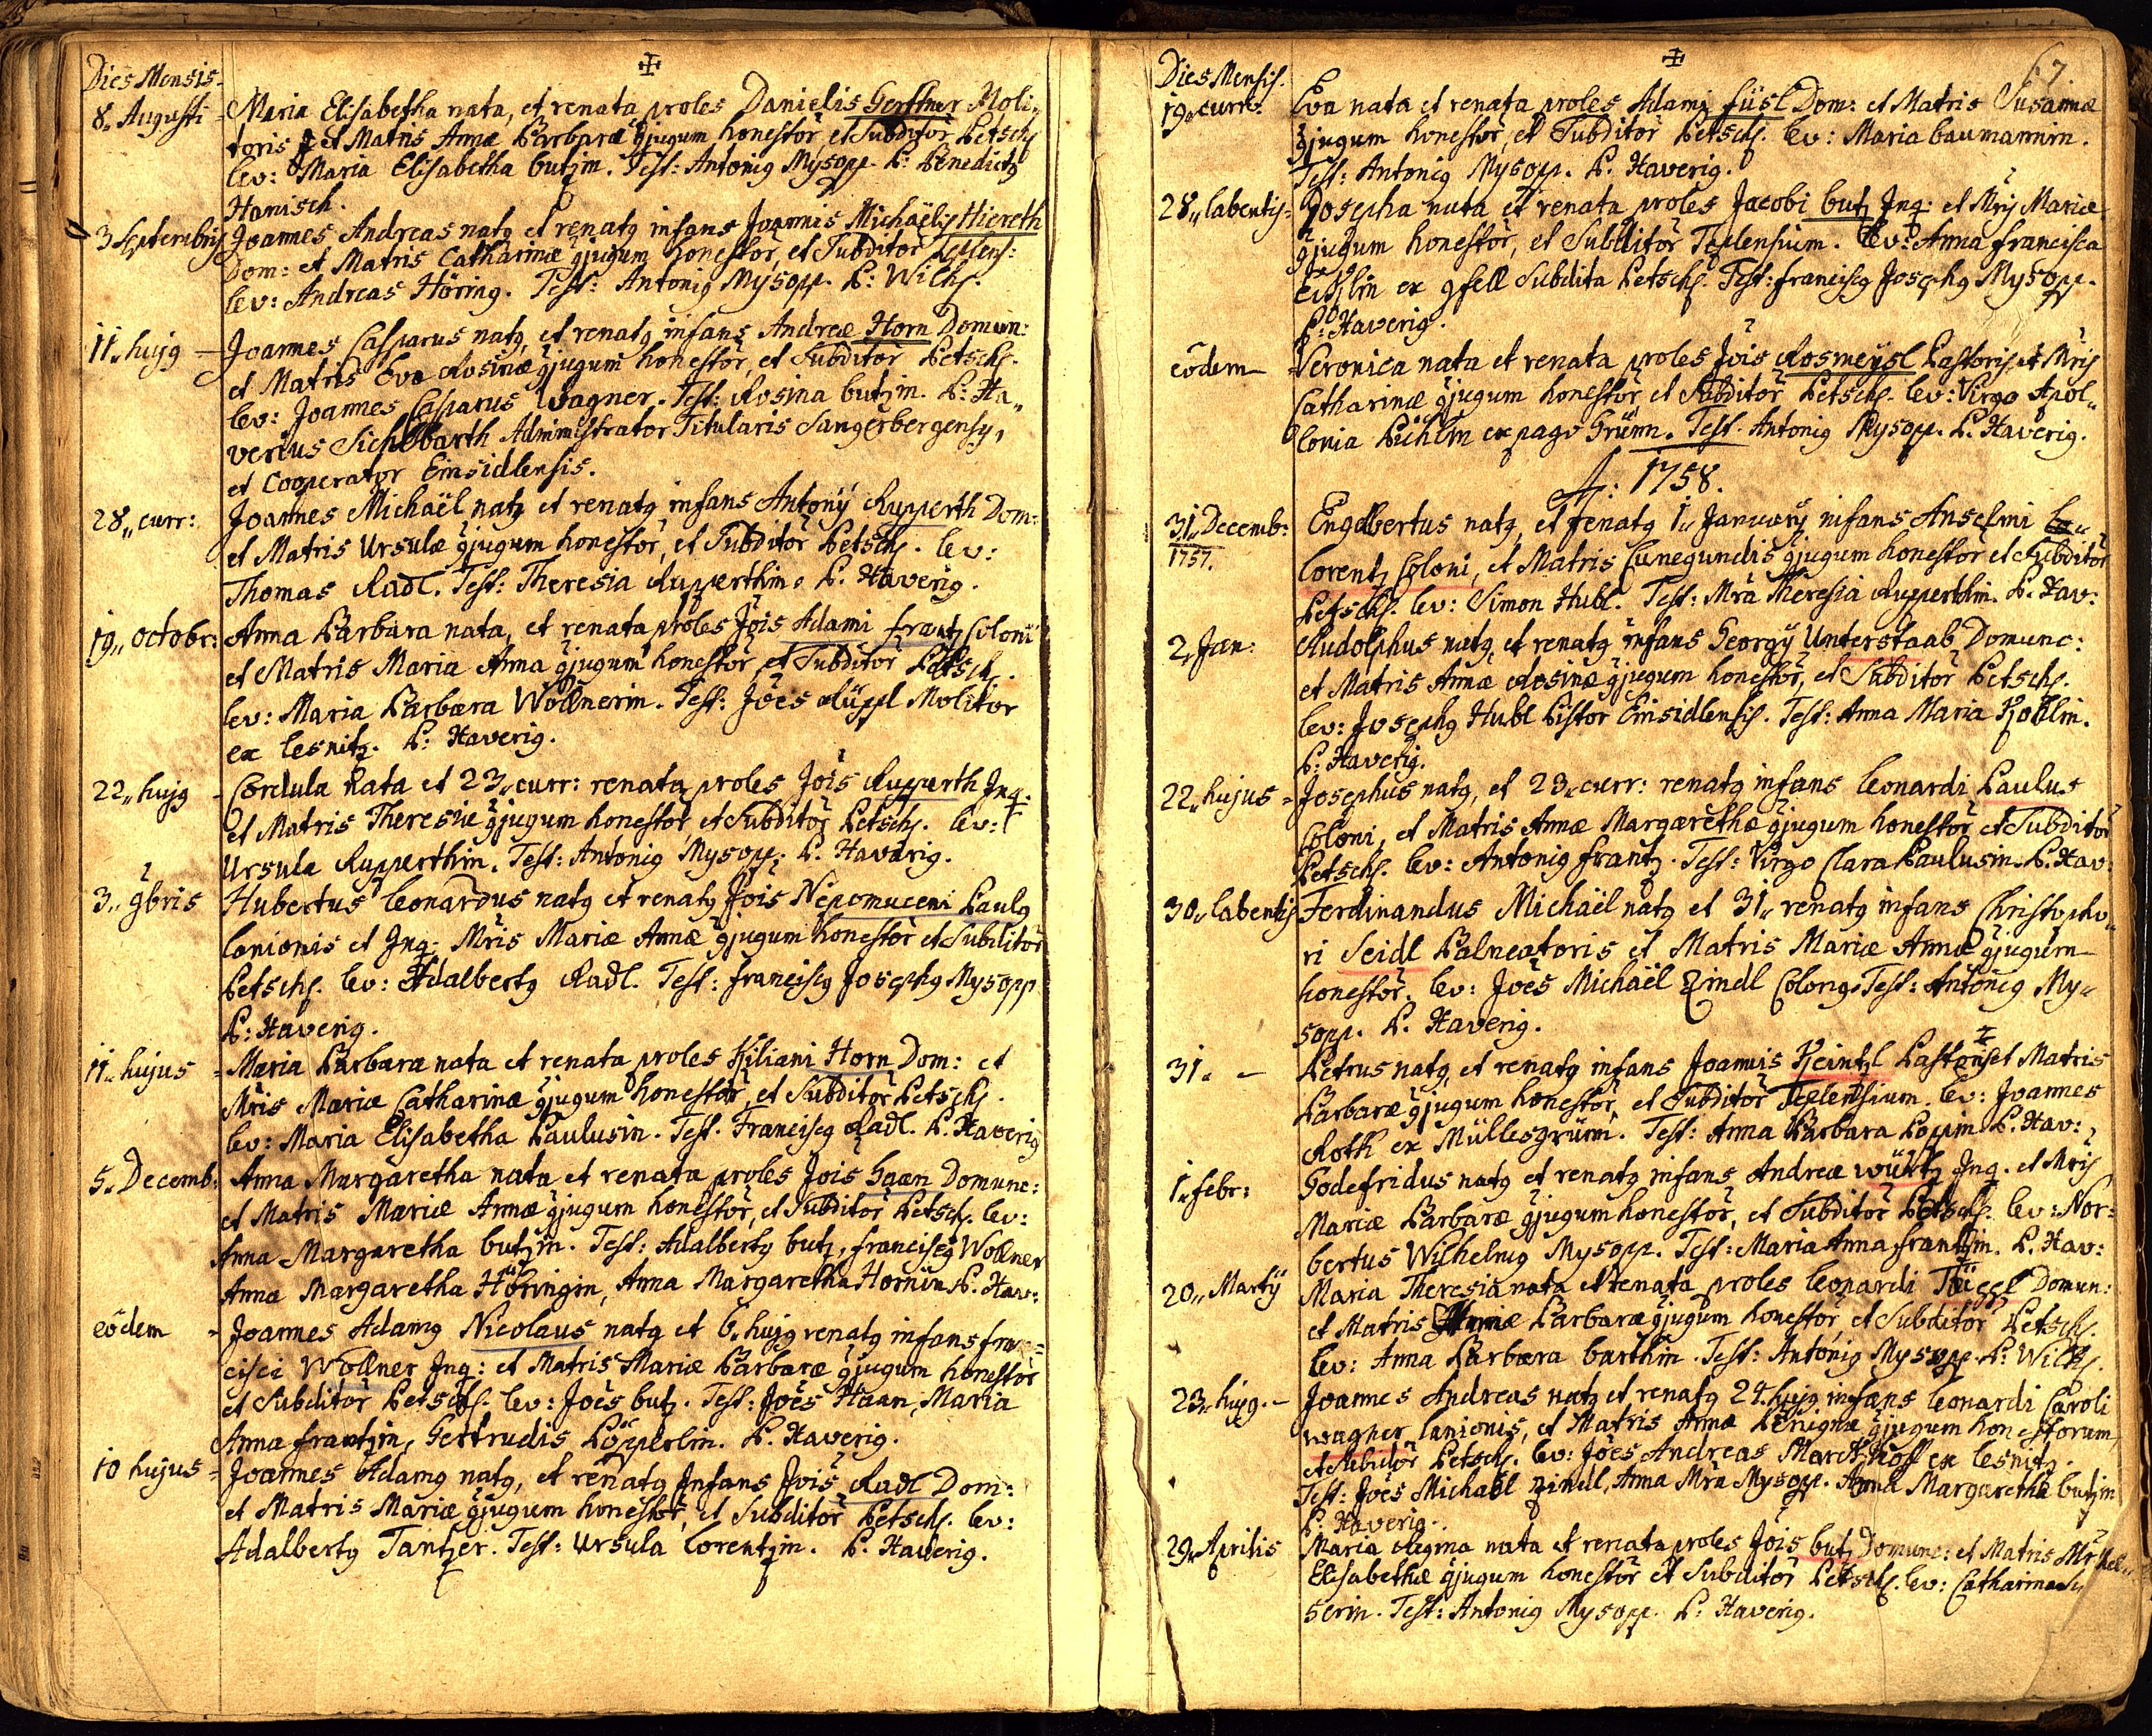 Dies Mensis.
8. Augusti Maria Elisabetha nata, et renata proles Danielis Gerstner Moli„
toris et Matris Annæ Barbaræ gjugum honestor, et Subditor Petsch.
lev: Maria Elisabetha butzin. Test: Antonig Mysopp. P: Benedictg
Hanisch.
3 Septembris Joannes Andreas natg et renatg infans Joannis Michaëlis Hiereth
Dom: et Matris Catharinæ gjugum honestor, et Subditor Teplens:
lev: Andreas Höring. Test: Antonig Mysopp. P: Wilh.
11„ hujg — Joannes Casparus natg, et renatg infans Andreæ Horn Domun:
et Matris Eva Rosinæ gjugum honestor, et Subditor Petsch.
lev: Joannes Casparus Wagner. Test: Rosina butzin. P: Ha„
verius Sichelbarth Administrator Titularis Sangerbergensis,
et Cooperator Einsidlensis.
28„ curr: Joannes Michaël natg et renatg infans Antonÿ Rupperth Dom:
et Matris Ursulæ gjugum honestor, et Subditor Petsch. lev:
Thomas Radl. Test: Theresia Rupperthin. P. Haverig.
19„ octobr: Anna Barbara nata, et renata proles Jöis Adami frantz Coloni
et Matris Maria Anna gjugum honestor, et Subditor Petsch.
lev: Maria Barbara Wöllnerin. Test: Jöes Rüppl Molitor
ex lesnitz. P: Haverig.
22„ hujg - Cordula Nata et 23„ curr: renata proles Jöis Rupperth Jnq.
et Matris Theresiæ gjugum honestor, et Subditor Petsch. lev:
Ursula Rupperthin. Test: Antonig Mysopp. P. Haverig.
3„ 9bris Hubertus leonardus natg et renatg Jöis Nepomuceni Paulg
lanionis et Jnq: Mris Mariæ Annæ gjugum honestor et Subditor
Petsch. lev: Adalbertg Radl. Test: franciscg Josephg Mysopp
P: Haverig.
11„ hujus = Maria Barbara nata et renata proles Kiliani Horn Dom: et
Mris Mariæ Catharinæ gjugum honestor, et Subditor Petsch.
lev: Maria Elisabetha Paulusin. Test. Franciscg Radl. P. Haverig
5. Decemb: Anna Margaretha nata et renata proles Jöis Haan Domunc:
et Matris Mariæ Annæ gjugum honestor, et Subditor Petsch. lev:
Anna Margaretha butzin. Test: Adalbertg butz, franciscg Wöllner
Anna Margaretha Höringin, Anna Margaretha Hornin P. Hav:
eödem - Joannes Adamg Nicolaus natg et 6. hujg renatg infans fran=
cisci Wöllner Jnq: et Matris Mariæ Barbaræ gjugum honestor
et Subditor Petsch. lev: Jöes butz. Test: Jöes Haan, Maria
Anna frantzin, Gertrudis Pöpperlin. P. Haverig.
10 hujus = Joannes Adamg natg, et renatg Jnfans Jöis Radl Dom:
et Matris Mariæ gjugum honestor, et Subditor Petsch. lev:
Adalbertg Tantzer. Test: Ursula lorentzin. P. Haverig.
67.
Dies Mensis.
19„ curr: Eva nata et renata proles Adami füsl Dom: et Matris Susannæ
gjugum honestor, et Subditor Petsch. lev: Maria baumannin.
Test: Antonig Mysopp. P. Haverig.
28„ labentis = Josepha nata et renata proles Jacobi butz Jnq: et Mris Mariæ
gjugum honestor, et Subditor Teplensium. lev: Anna francisca
ex gfell Subdita Petsch. Test: franciscg Josephg Mysopp.
P: Haverig.
eödem — Veronica nata et renata proles Jöis Rosmeysl Pastoris et Mris
Catharinæ gjugum honestor, et Subditor Petsch. lev: Virgo Apol„
lonia Pichlin ex pago Grünn. Test. Antonig Mysopp. P. Haverig.
A: 1758.
31. Decemb: 1757. Engelbertus natg, et renatg 1„ Januarÿ infans Anselmi
lorentz Coloni, et Matris Cunegundis gjugum honestor et Subditor
Petsch. lev: Simon Hubl. Test: Mra Theresia Rupperthin. P. Hav:
2. Jan: Rudolphus natg et renatg infans Georgÿ Unterstaab Domunc:
et Matris Annæ Rosinæ gjugum honestor, et Subditor Petsch.
lev: Josephg Hubl Pistor Einsidlensis. Test: Anna Maria
P: Haverig.
22„ hujus = Josephus natg, et 23„ curr: renatg infans leonardi Paulus
Coloni, et Matris Annæ Margarethæ gjugum honestor et Subditor
Petsch. lev: Antonig frantz. Test: Virgo Clara Paulusin. P. Hav:
30„ labentis Ferdinandus Michaël natg et 31„ renatg infans Christopho„
ri Seidl Balneatoris et Matris Mariæ Annæ gjugum
honestor. lev: Jöes Michaël Zindl Colong. Test: Antonig My„
sopp. P. Haverig.
31. — Petrus natg, et renatg infans Joannis Kjeintzl Pastoris et Matris
Barbaræ gjugum honestor, et Subditor Teplensium. lev: Joannes
Roth ex Müllesgrünn. Test: Anna Barbara Poppin P. Hav:
1. febr: Godefridus natg et renatg infans Andreæ würtz Jnq. et Mris
Mariæ Barbaræ gjugum honestor, et Subditor Petsch. lev: Nor=
bertus Wilhelmg Mysopp. Test: Maria Anna frantzin. P. Hav:
20„ Martÿ Maria Theresia nata et renata proles leonardi Domun:
et Matris Annæ Barbaræ gjugum honestor et Subditor Petsch.
lev: Anna Barbara barthin. Test: Antonig Mysopp. P: Wilh.
23„ hujg. - Joannes Andreas natg et renatg 24. hujg infans leonardi Caroli
wagner lanionis, et Matris Annæ Benignæ gjugum honestorum,
et Subditor Petsch. lev: Jöes Andreas ex lesnitz.
Test: Jöes Michaël Zindl, Anna Mra Mysopp. Anna Margaretha butzin
P. Haverig.
29. Aprilis Maria Regina nata et renata proles Jöis butz Domunc: et Matris Mr
Elisabethæ gjugum honestor et Subditor Petsch. lev: Catharina
serin. Test: Antonig Mysopp. P: Haverig.